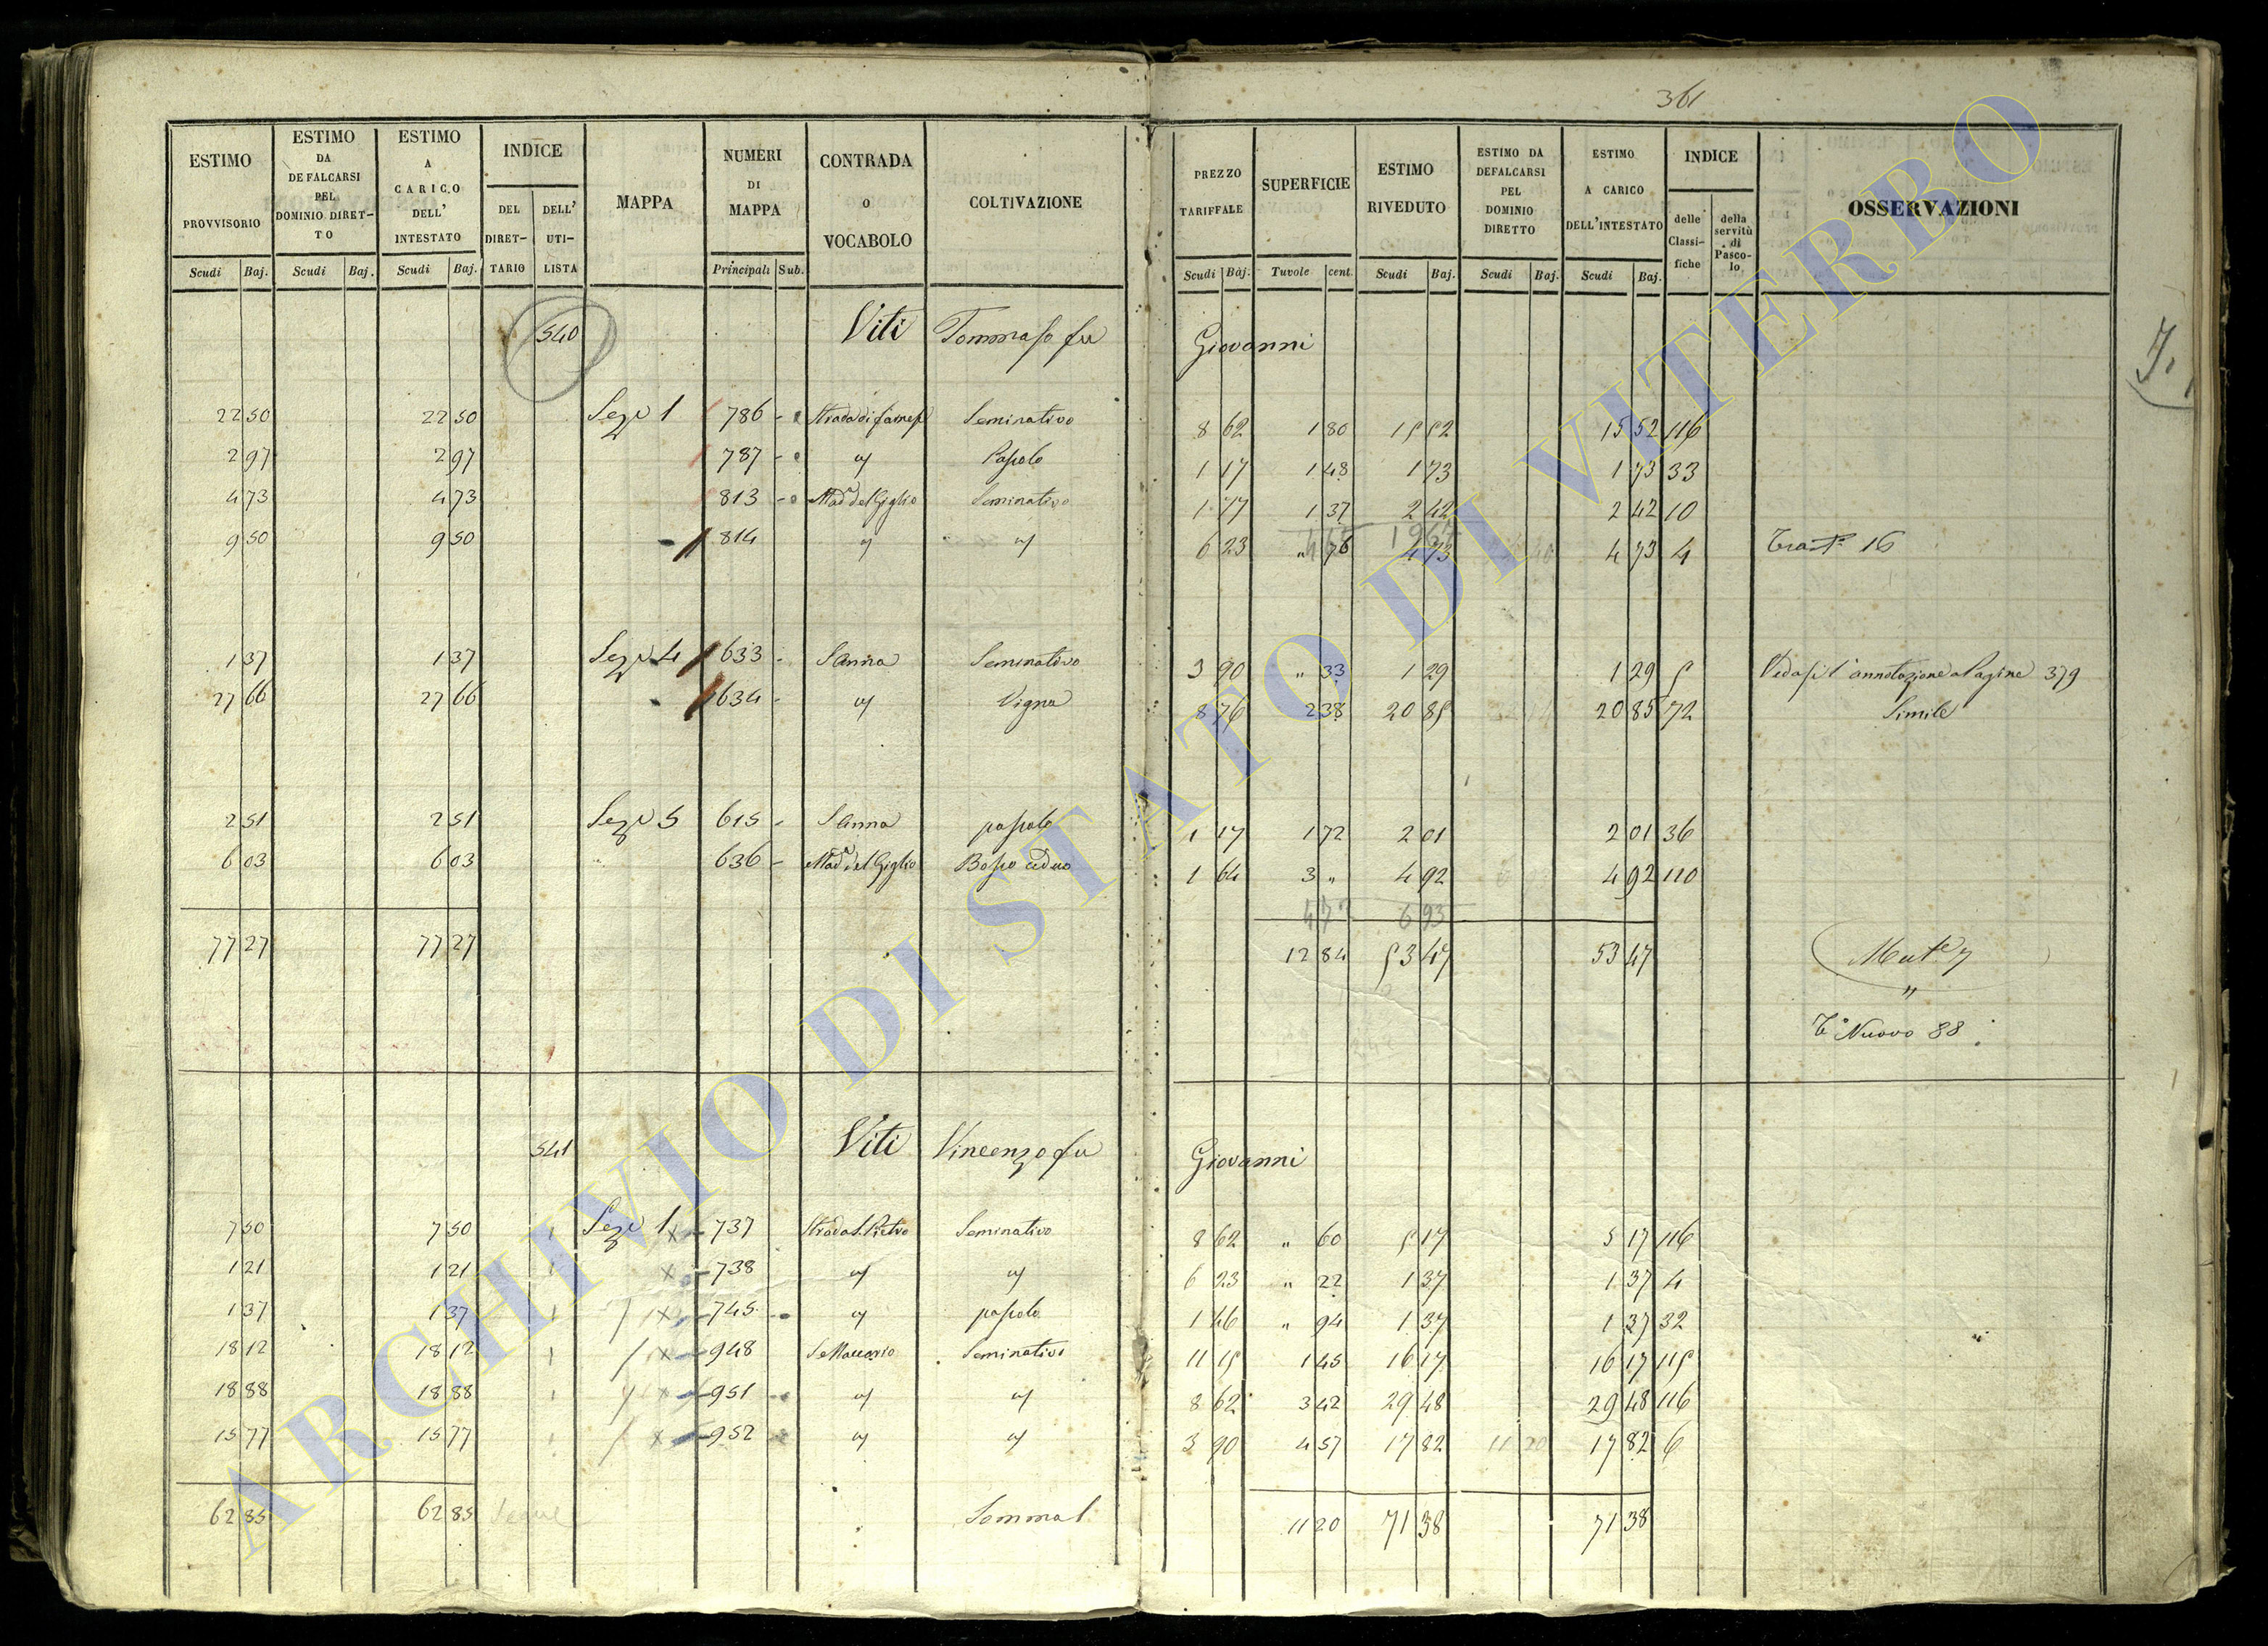 361
ESTIMO PROVVISORIO
ESTIMO DA DEFALCARSI PEL DOMINIO DIRET-TO
ESTIMO A CARICO DELL' INTESTATO
INDICE
DEL DIRET-TARIO
DELL' UTI-LISTA
MAPPA
NUMERI DI MAPPA
CONTRADA O VOCABOLO
COLTIVAZIONE
PREZZO TARIFFALE
SUPERFICIE
ESTIMO RIVEDUTO
ESTIMO DA DEFALCARSI PEL DOMINIO DIRETTO
ESTIMO A CARICO DELL'INTESTATO
INDICE
delle Classi-fiche
della servitù di Pasco-lo
OSSERVAZIONI
Scudi Baj. Scudi Baj. Scudi Baj. Principali Sub. Scudi Baj. Tavole cent. Scudi Baj. Scudi Baj. Scudi Baj.
540 Viti Tommaso fu Giovanni
22 50 22 50 Sezne 1 786 Strada di Farnese Seminativo 8 62 1 80 15 52 15 52 116
2 97 2 97 787 " Pascolo 1 17 1 48 1 73 1 73 33
4 73 4 73 813 Mada del Giglio Seminativo 1 77 1 37 2 42 2 42 10
4 65 19 67
9 50 9 50 814 " " 6 23 " 76 4 73 4 73 4 Trasto 16
1 37 1 37 Sezne 4 633 S Anna Seminativo 3 90 " 33 1 29 1 29 5 Vedasi l'annotazione a Pagine 379
27 66 27 66 634 " Vigna 8 76 2 38 20 85 20 85 72 Simile
2 51 2 51 Sezne 5 615 S Anna pascolo 1 17 1 72 2 01 2 01 36
6 03 6 03 636 Mada del Giglio Bosco ceduo 1 64 3 " 4 92 4 92 110
4 72 6 93
77 27 77 27 12 84 53 47 53 47 Mute 7
"
To Nuovo 88
541 Viti Vincenzo fu Giovanni
7 50 7 50 Sezne 1 737 Strada S. Pietro Seminativo 8 62 " 60 5 17 5 17 116
1 21 1 21 738 " " 6 23 " 22 1 37 1 37 4
1 37 1 37 745 " pascolo 1 46 " 94 1 37 1 37 32
18 12 18 12 948 S Maccario Seminativo 11 15 1 45 16 17 16 17 115
18 88 18 88 951 " " 8 62 3 42 29 48 29 48 116
15 77 15 77 952 " " 3 90 4 57 17 82 11 20 17 82 6
62 85 62 85 Segue Somma l 11 20 71 38 71 38
ARCHIVIO DI STATO DI VITERBO